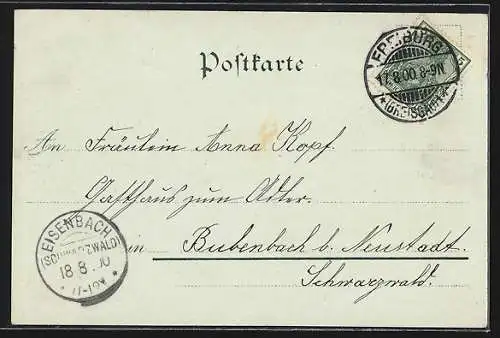 Postkarte
FREIBURG
17.8.00.8-9N
* (BREISGAU) *
5
An Fräulein Anna Kopf.
Gasthaus zum Adler.
in Bubenbach b. Neustadt.
Schwarzwald.
EISENBACH
(SCHWARZWALD)
18 8. 00
* 11-12V *